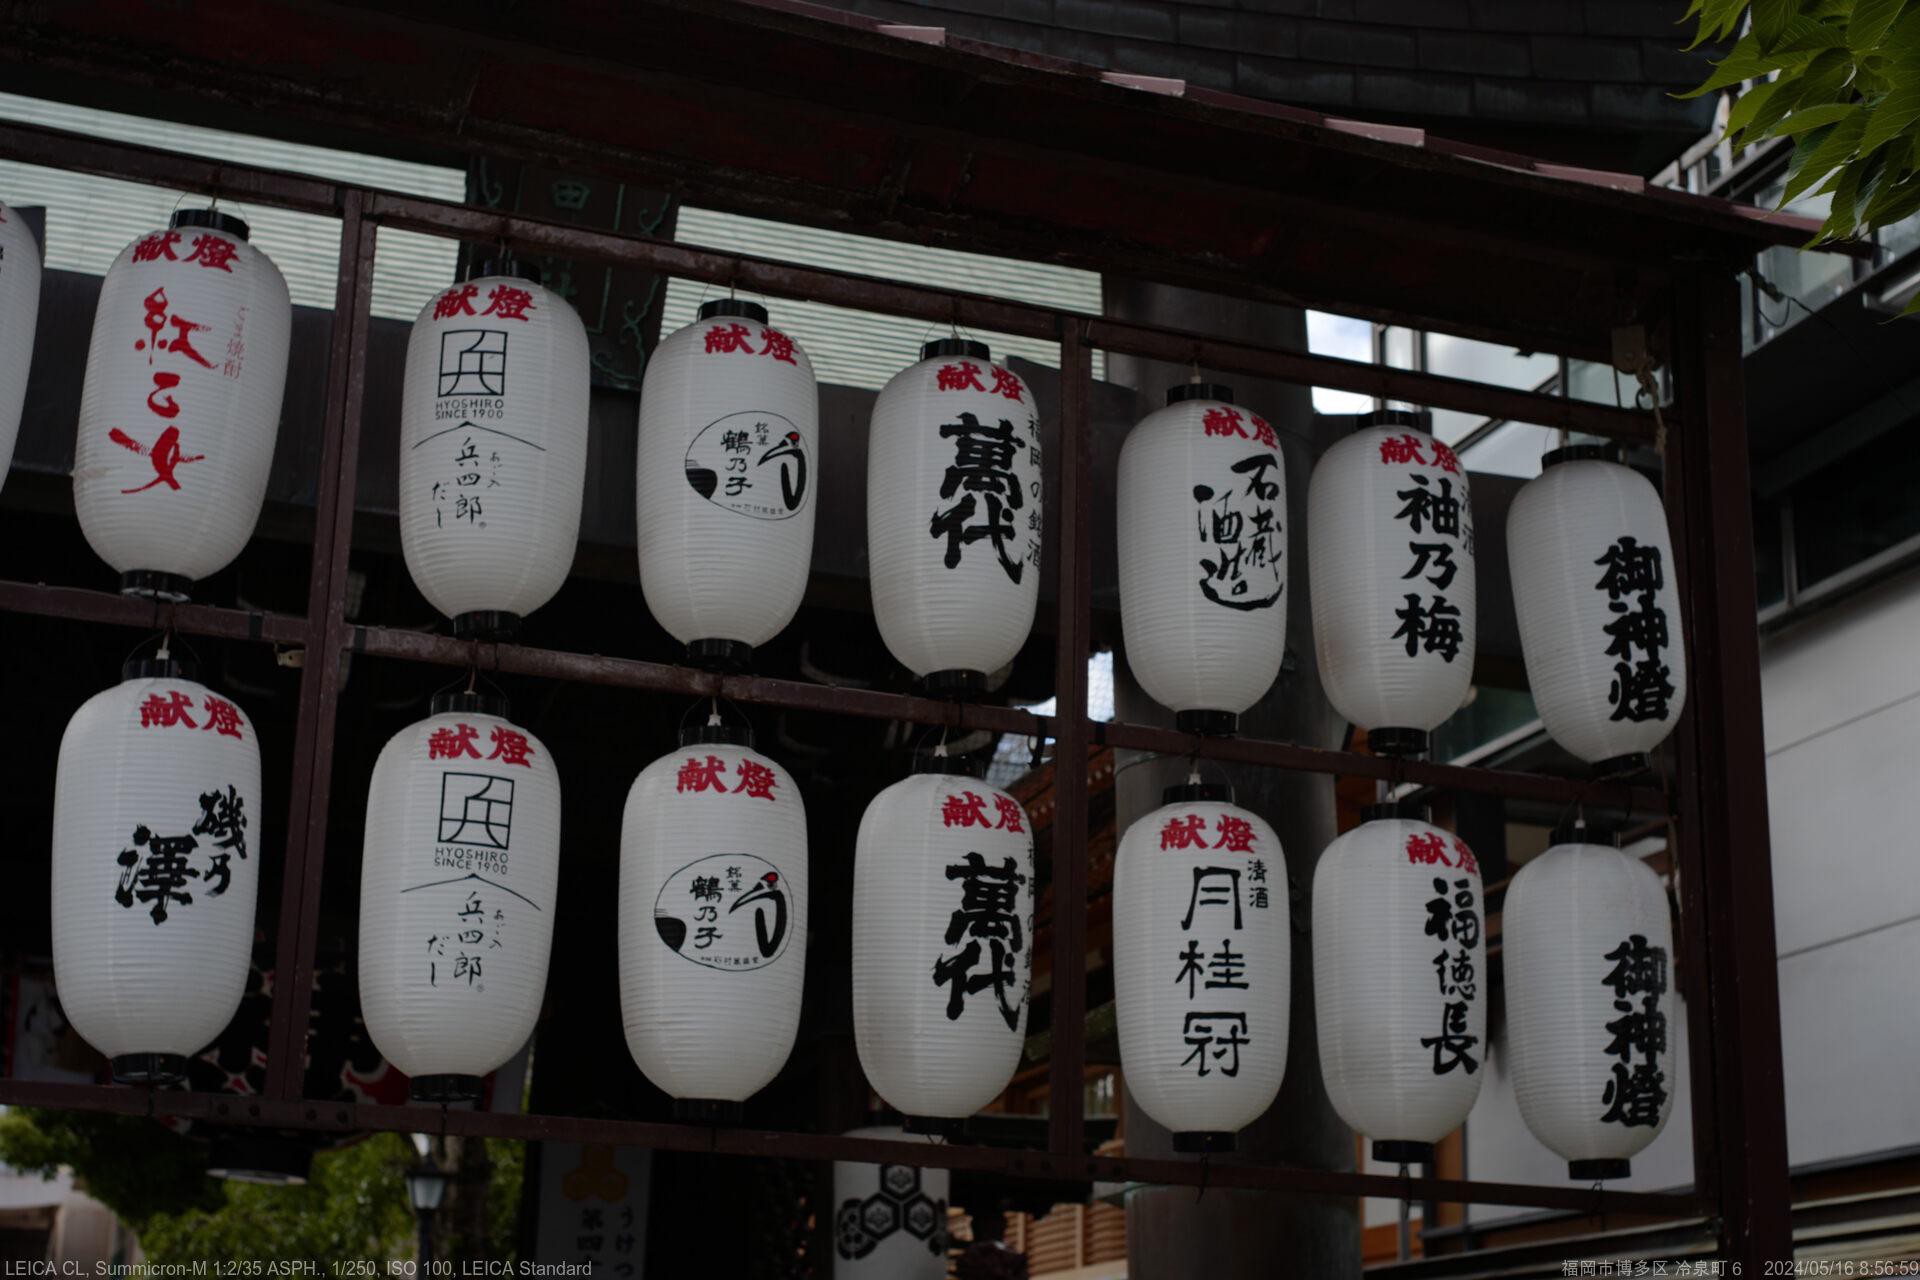 献燈
紅乙女
ごま焼酎
献燈
兵
HYOSHIRO
SINCE 1900
あご入
兵四郎
だし
献燈
銘菓
鶴乃子
石村萬盛堂
献燈
福岡の銘酒
萬代
献燈
石蔵
酒造
献燈
清酒
袖乃梅
御神燈
献燈
磯乃
澤
献燈
兵
HYOSHIRO
SINCE 1900
あご入
兵四郎
だし
献燈
銘菓
鶴乃子
石村萬盛堂
献燈
福岡の銘酒
萬代
献燈
清酒
月桂冠
献燈
福徳長
御神燈
田
うけつ
第四
LEICA CL, Summicron-M 1:2/35 ASPH., 1/250, ISO 100, LEICA Standard
福岡市博多区 冷泉町 6 2024/05/16 8:56:59